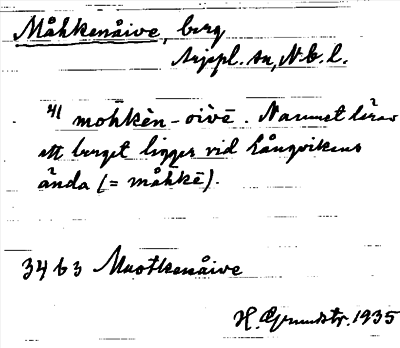 Måhkenåive, berg
Arjepl. sn, N.b.l.
41 mohkèn-oivē. Namnet lärer
ett berget ligger vid Långvikens
ända (= måhkē).
3463 Muotkenåive
H. Grundstr. 1935